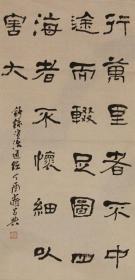 行萬里者不中
途而輟足圖四
海者不懷細以
害大